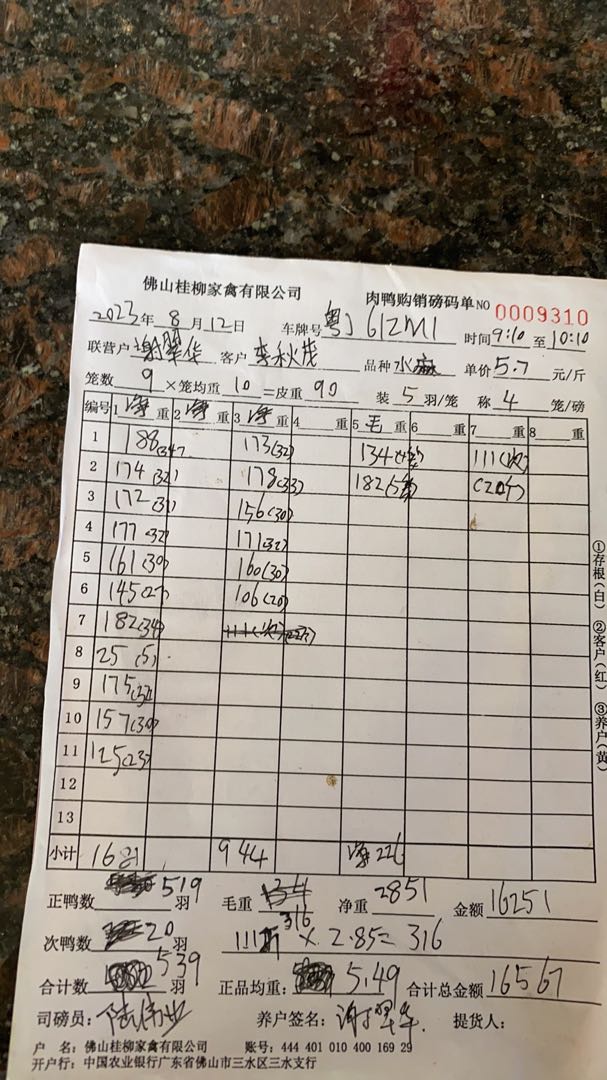 佛山桂柳家禽有限公司 肉鸭购销磅码单 NO 0009310
2023年 8 月 12日 车牌号 粤J 61ZM1 时间 9:10 至 10:10
联营户 谢翠华 客户 李秋茂 品种 水麻 单价 5.7 元/斤
笼数 9 ×笼均重 10 =皮重 90 装 5 羽/笼 称 4 笼/磅
编号 1 净 重 2 净 重 3 净 重 4 重 5 毛 重 6 重 7 重 8 重
1 188(34) 173(32) 134 111(次)
2 174(32) 178(33) 182 (20个)
3 172(31) 156(30)
4 177(32) 171(32)
5 161(30) 160(30)
6 145(27) 106(20)
7 182(34) 111(次)
8 25(5)
9 175(32)
10 157(30)
11 125(23)
12
13
小计 1681 944 净226
正鸭数 519 羽 毛重 净重 2851 金额 16251
316
次鸭数 20 羽 111斤 × 2.85= 316
合计数 539 羽 正品均重: 5.49 合计总金额 16567
司磅员: 陆伟业 养户签名: 谢翠华 提货人:
户 名: 佛山桂柳家禽有限公司 账号: 444 401 010 400 169 29
开户行: 中国农业银行广东省佛山市三水区三水支行
①存根(白) ②客户(红) ③养户(黄)